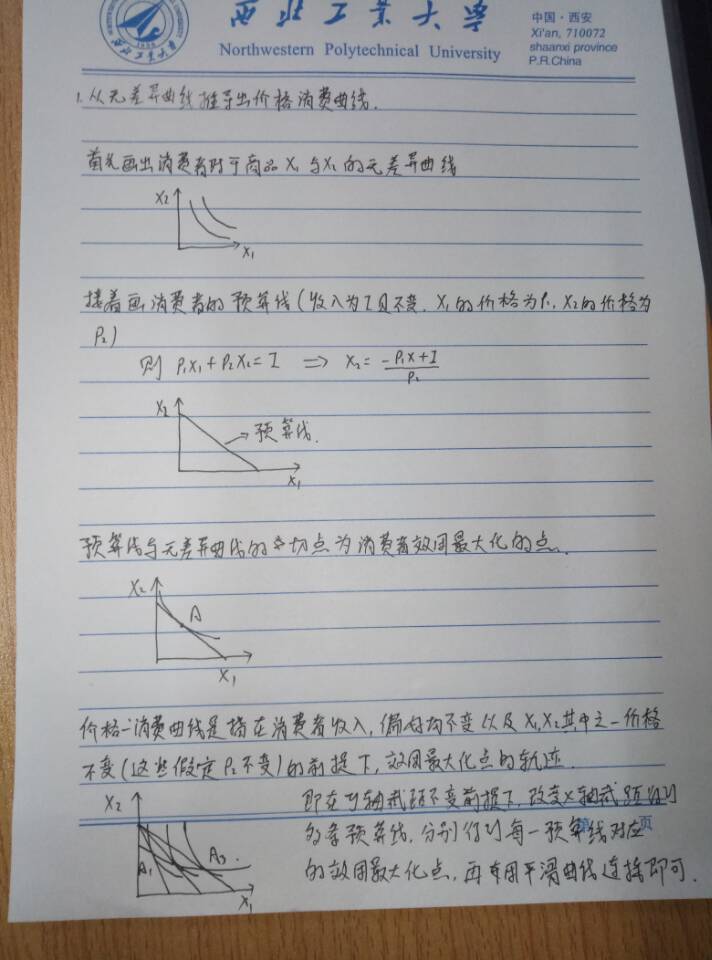 西北工业大学
Northwestern Polytechnical University
中国·西安
Xi'an, 710072
shaanxi province
P.R.China
1. 从无差异曲线推导出价格消费曲线.
首先画出消费者对于商品 X1 与 X2 的无差异曲线
X2
X1
接着画消费者的预算线(收入为I且不变. X1的价格为P1, X2的价格为
P2)
则 P1X1+P2X2=I ⇒ X2= -P1X+I / P2
X2
预算线.
X1
预算线与无差异曲线的切点为消费者效用最大化的点.
X2
A
X1
价格-消费曲线是指在消费者收入,偏好均不变以及X1,X2其中之一价格
不变(这些假定P2不变)的前提下,效用最大化点的轨迹.
X2
A1
A3
X1
即在Y轴截距不变前提下,改变X轴截距得到
预算线,分别得到每一预算线对应
第 页
的效用最大化点,再用平滑曲线连接即可.